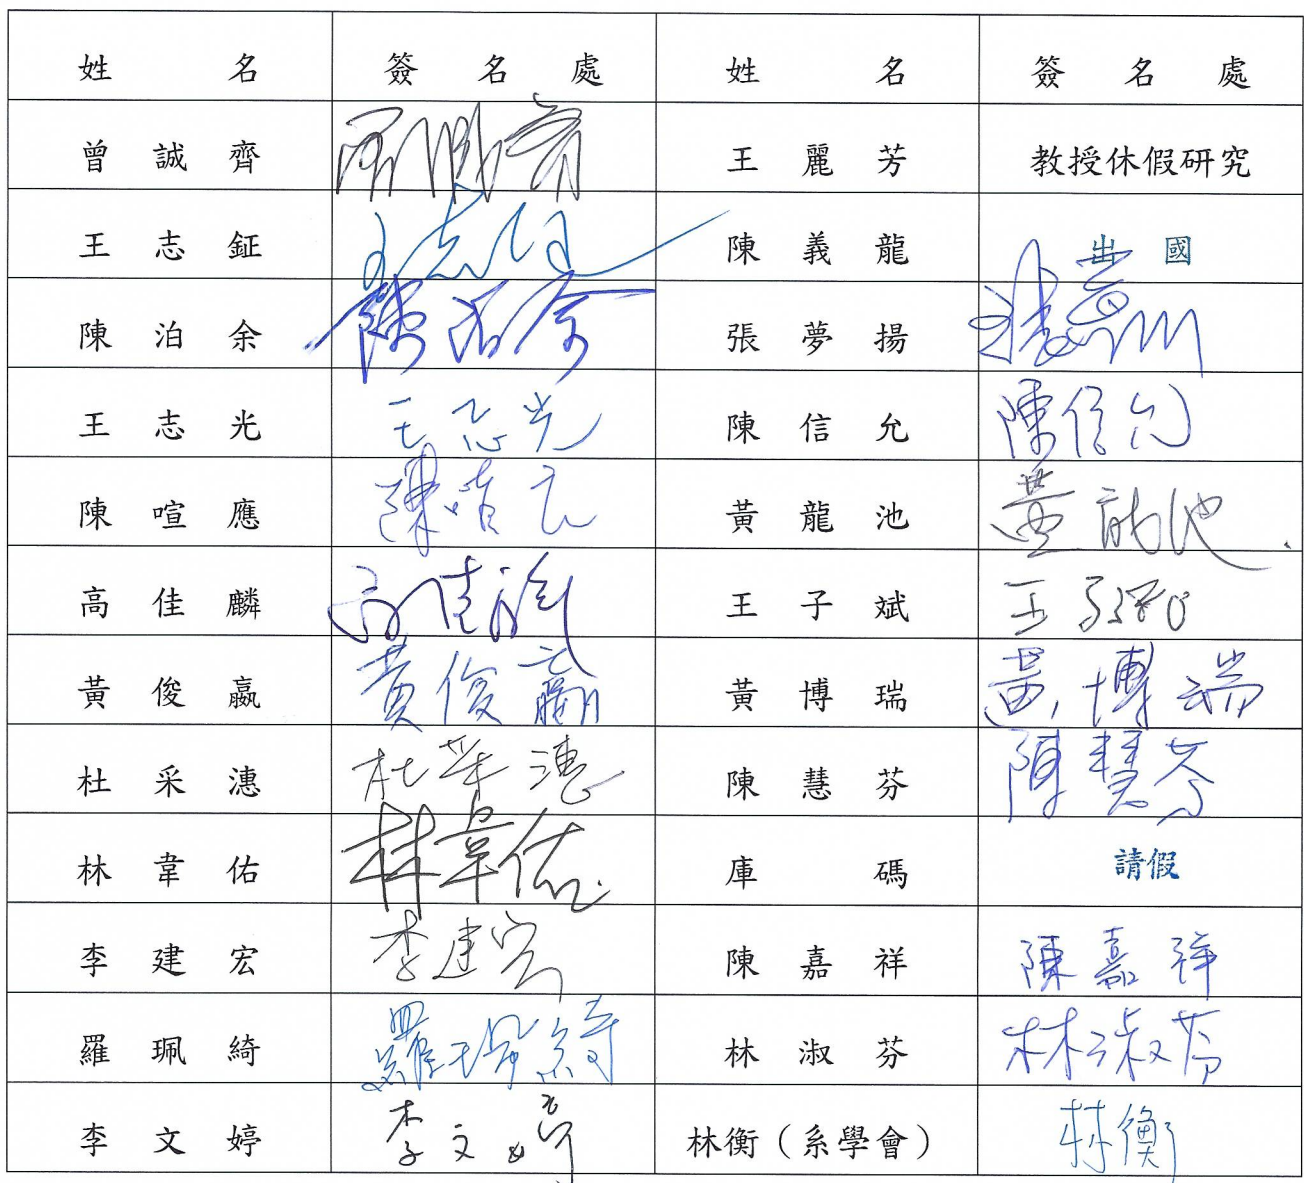 姓名 簽名處 姓名 簽名處
曾誠齊 王麗芳 教授休假研究
王志鉦 王志鉦 陳義龍 出國
陳泊余 陳泊余 張夢揚
王志光 王志光 陳信允 陳信允
陳喧應 陳喧应 黃龍池 黃龍池
高佳麟 高佳麟 王子斌 王子斌
黃俊嬴 黃俊嬴 黃博瑞 黃博瑞
杜采漶 杜采漶 陳慧芬 陳慧芬
林韋佑 林韋佑 庫碼 請假
李建宏 李建宏 陳嘉祥 陳嘉祥
羅珮綺 羅珮綺 林淑芬 林淑芬
李文婷 李文婷 林衡（系學會） 林衡